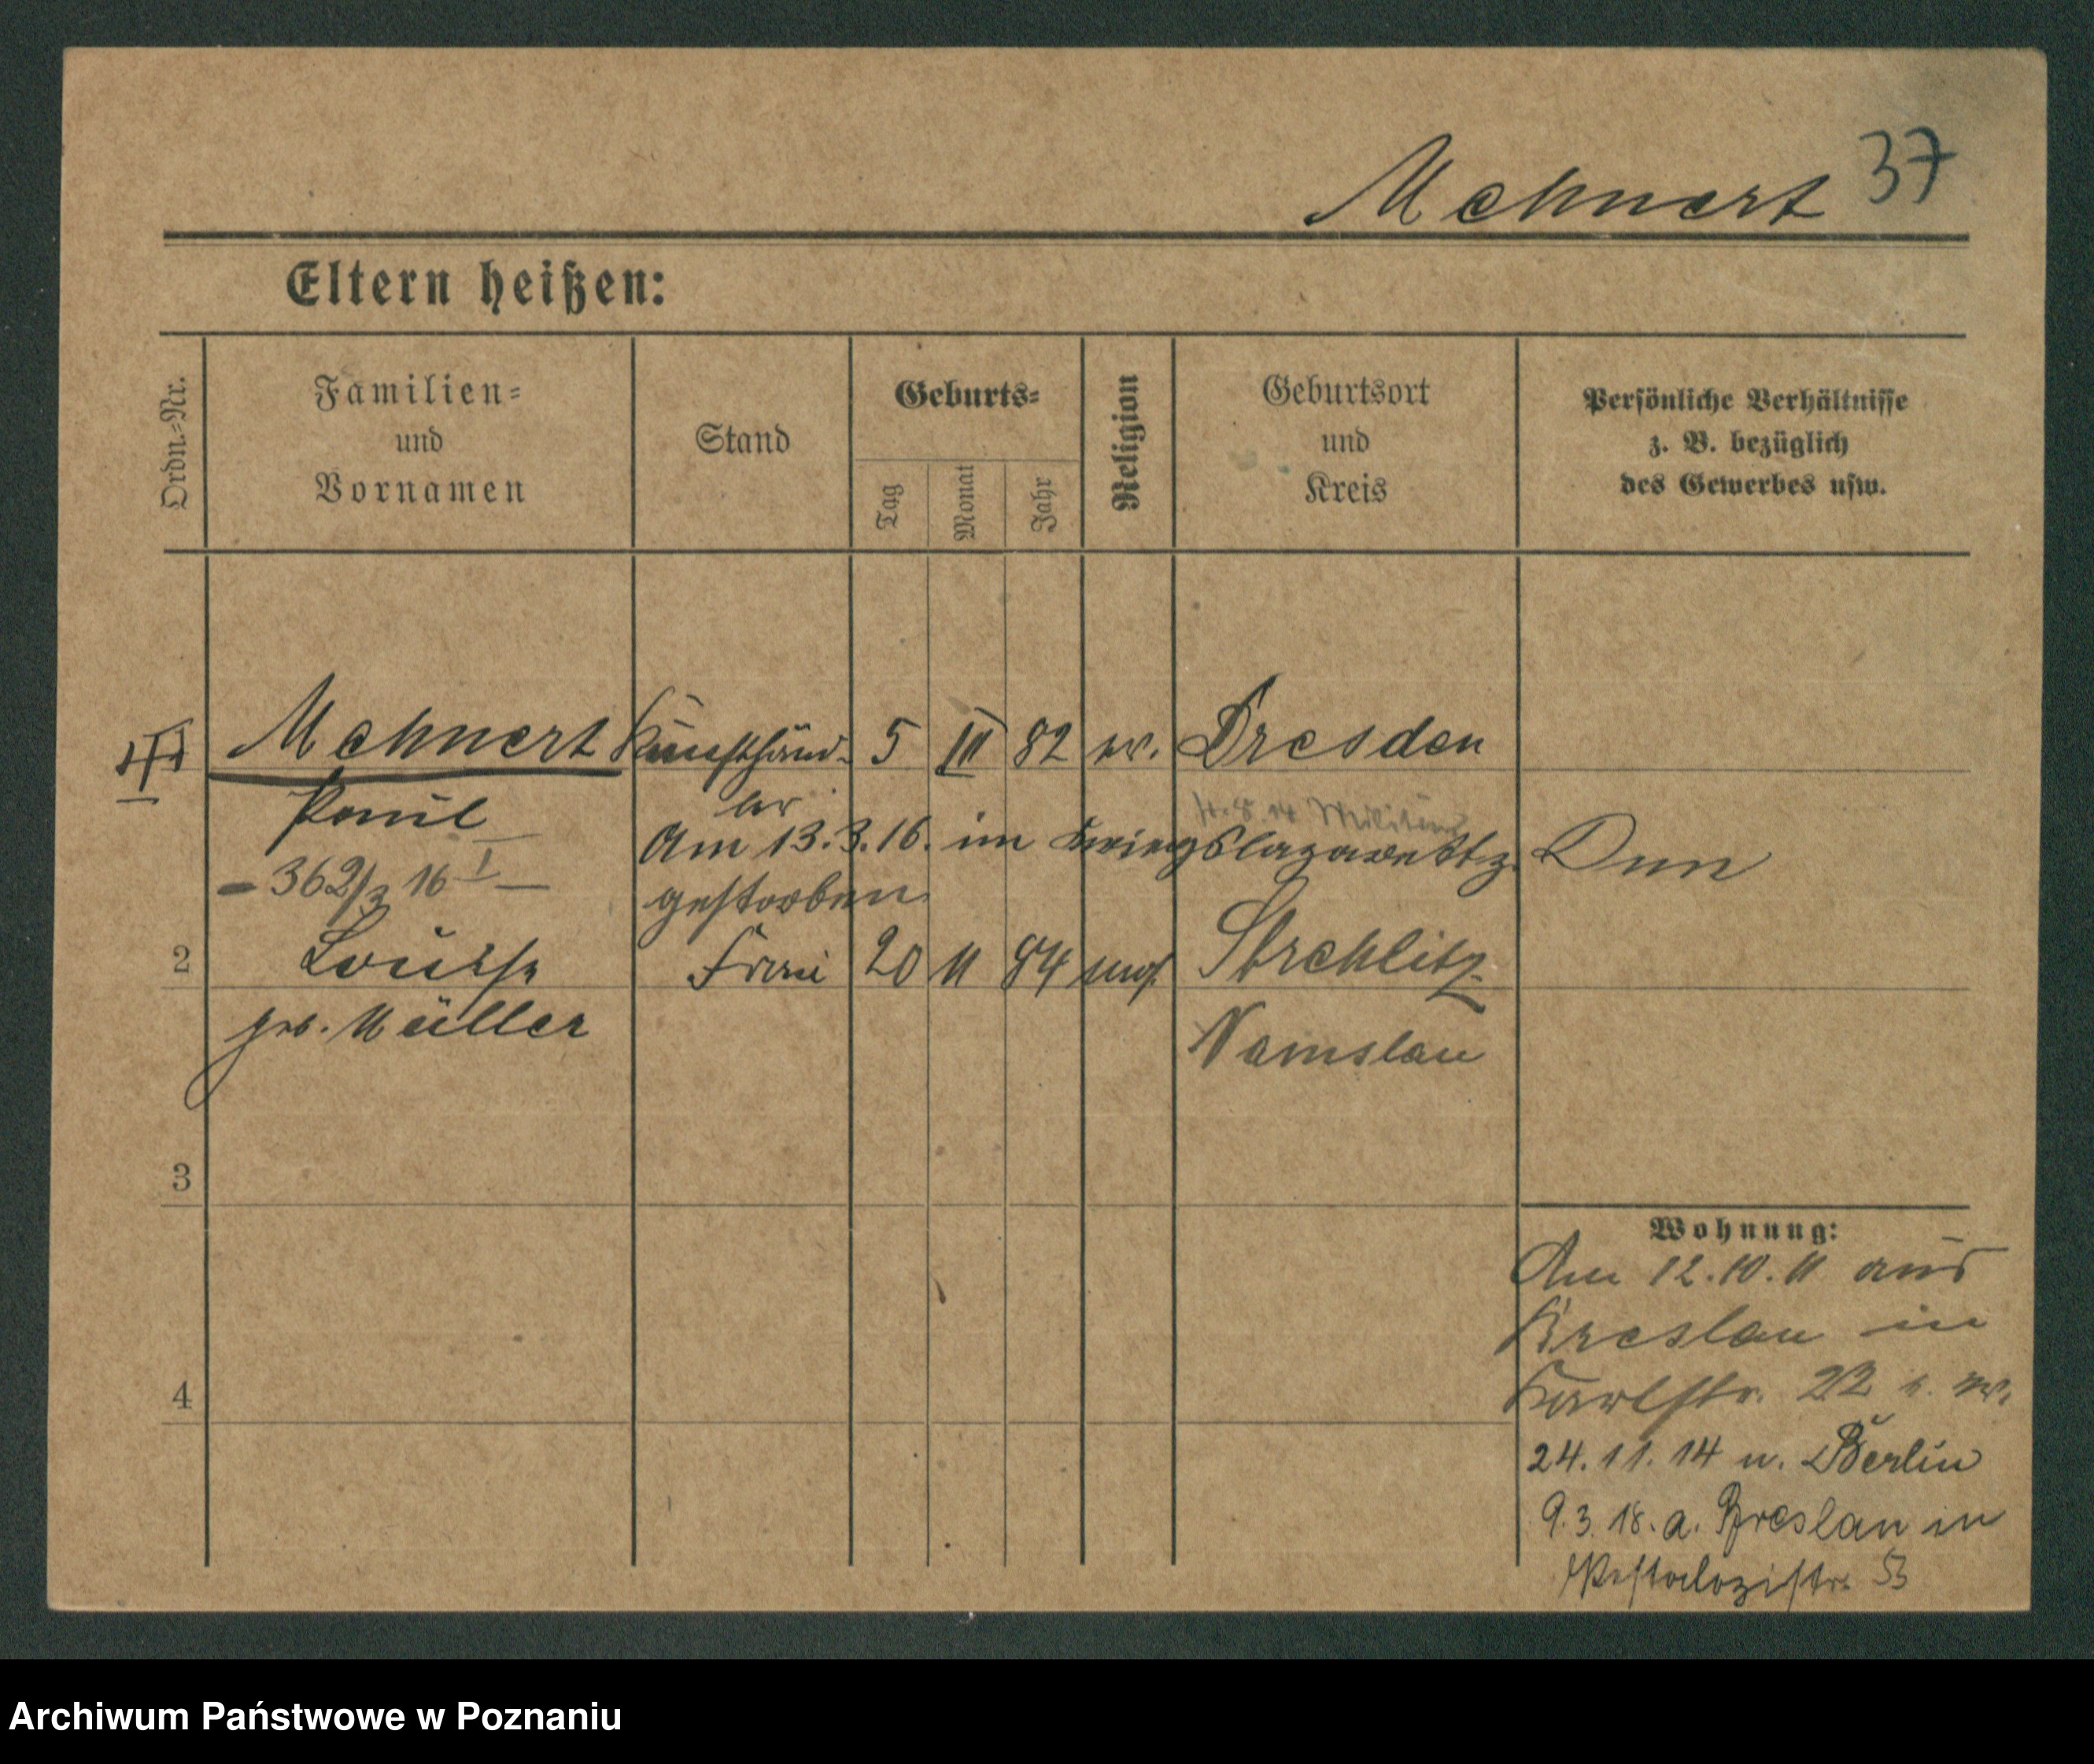 Mehnert 37
Eltern heißen:
Ordn.-Nr.
Familien-
und
Vornamen
Stand
Geburts-
Tag
Monat
Jahr
Religion
Geburtsort
und
Kreis
Persönliche Verhältnisse
z. B. bezüglich
des Gewerbes usw.
Mehnert Kunsthänd- 5 III 82 ev. Dresden
Paul ler
4.8.14 Militär
Am 13.3.16. im Kriegslazarett z. Dun
- 362/3 16 I -
gestorben
2 Louise Frau 20 11 84 ev. Strehlitz
geb. Müller Namslau
3
4
Wohnung:
Am 12.10.11 aus
Breslau in
Karlstr. 22
24.11.14 n. Berlin
9.3.18. a. Breslau in
Pestalozistr. 53
Archiwum Państwowe w Poznaniu